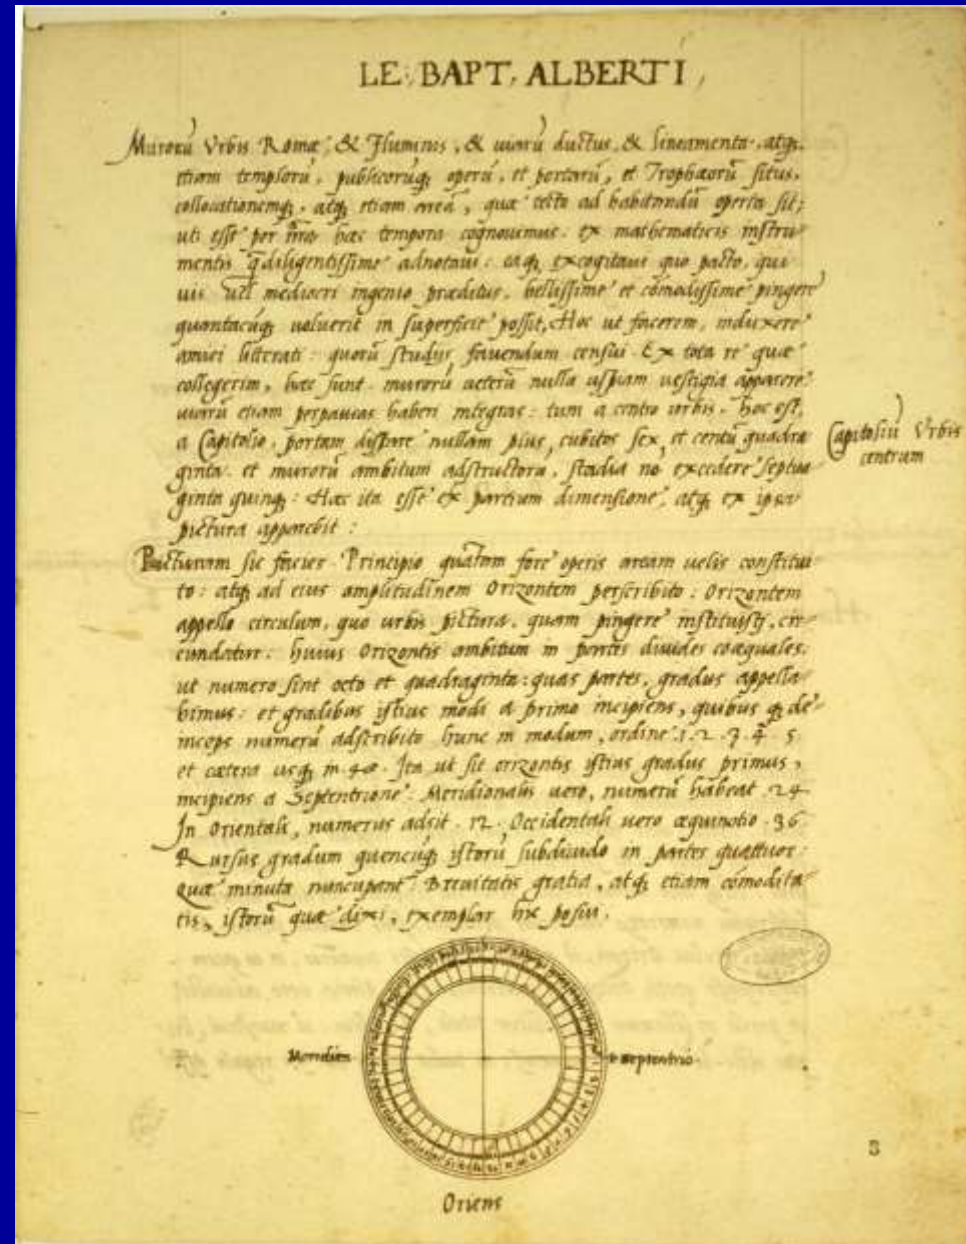 LE. BAPT. ALBERTI,
Murorũ Vrbis Romæ, & Fluminis, & uiarũ ductus, & lineamenta, atq;
etiam templorũ, publicorũq; operũ, et portarũ, et Trophæorũ situs,
collocationemq;, atq; etiam areã, quæ tecto ad habitandũ operta sit;
uti esse per nr̃a hæc tempora cognouimus. ex mathematicis instru-
mentis q̃diligentissime adnotaui: eaq; excogitaui quo pacto, qui
uis uel mediocri ingenio præditus, bellissime et cõmodissime pingere
quantacũq; uoluerit in superficie possit, Hoc ut facerem, induxere
amici litterati: quorũ studijs fauendum censui. Ex tota re quæ
collegerim, hæc sunt. murorũ ueterũ nulla uspiam uestigia apparere:
uiarũ etiam perpaucas haberi integras: tum a centro urbis. hoc est,
a Capitolio. portam distare nullam plus, cubitos sex, et centũ quadra
ginta. et murorũ ambitum adstructorũ, stadia nõ excedere septua
ginta quinq;: Hæc ita esse ex partium dimensione, atq; ex ipsa
pictura apparebit:
Capitoliũ Vrbis
centrum
Picturam sic facies. Principio quãtam fore operis aream uelis constitui-
to: atq; ad eius amplitudinem Orizontem perscribito: Orizontem
appello circulum, quo urbis pictura, quam pingere instituisti, cir-
cundatur: huius Orizontis ambitum in partes diuides coæquales:
ut numero sint octo et quadraginta: quas partes, gradus appella
bimus: et gradibus istius modi a primo incipiens, quibus q; de-
inceps numerũ adscribito hunc in modum, ordine .1. 2. 3. 4. 5.
et cætera usq; in 48. Ita ut sit orizontis istius gradus primus,
incipiens a Septentrione. Meridionalis uero, numerũ habeat .24.
In Orientali, numerus adsit .12. Occidentali uero æquinotio .36
Rursus gradum quencũq; istorũ subdiuido in partes quattuor:
Quæ minuta nuncupant. Breuitatis gratia, atq; etiam cõmodita-
tis, istorũ quæ dixi, exemplar hic posui.
Meridies
Septentrio.
Oriens
3